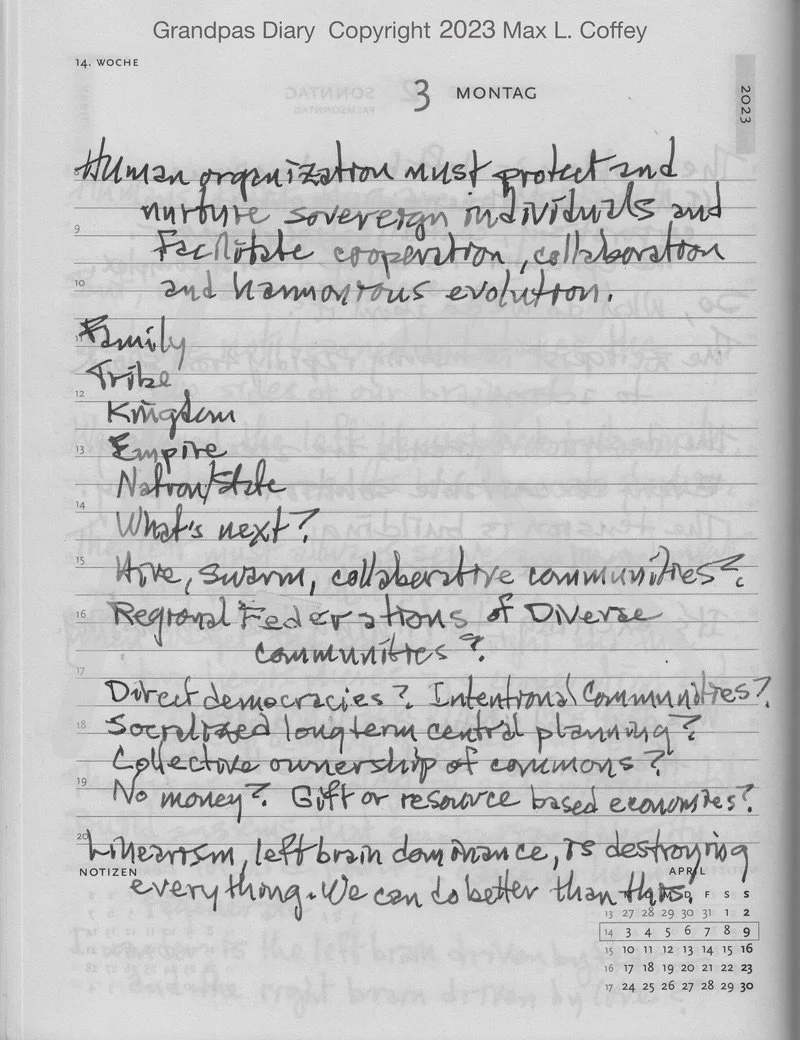 Grandpas Diary Copyright 2023 Max L. Coffey
14. WOCHE
3 MONTAG
2023
Human organization must protect and
nurture sovereign individuals and
9
facilitate cooperation, collaboration
10
and harmonious evolution.
11
Family
Tribe
12
Kingdom
13
Empire
Nation/State
14
What's next?
15
Hive, swarm, collaborative communities?
16
Regional Federations of Diverse
communities?
17
Direct democracies? Intentional Communities?
18
Socialized longterm central planning?
Collective ownership of commons?
19
No money? Gift or resource based economies?
20
Linearism, left brain dominance, is destroying
NOTIZEN
APRIL
everything. We can do better than this.
M D F S S
13 27 28 29 30 31 1 2
14 3 4 5 6 7 8 9
15 10 11 12 13 14 15 16
16 17 18 19 20 21 22 23
17 24 25 26 27 28 29 30